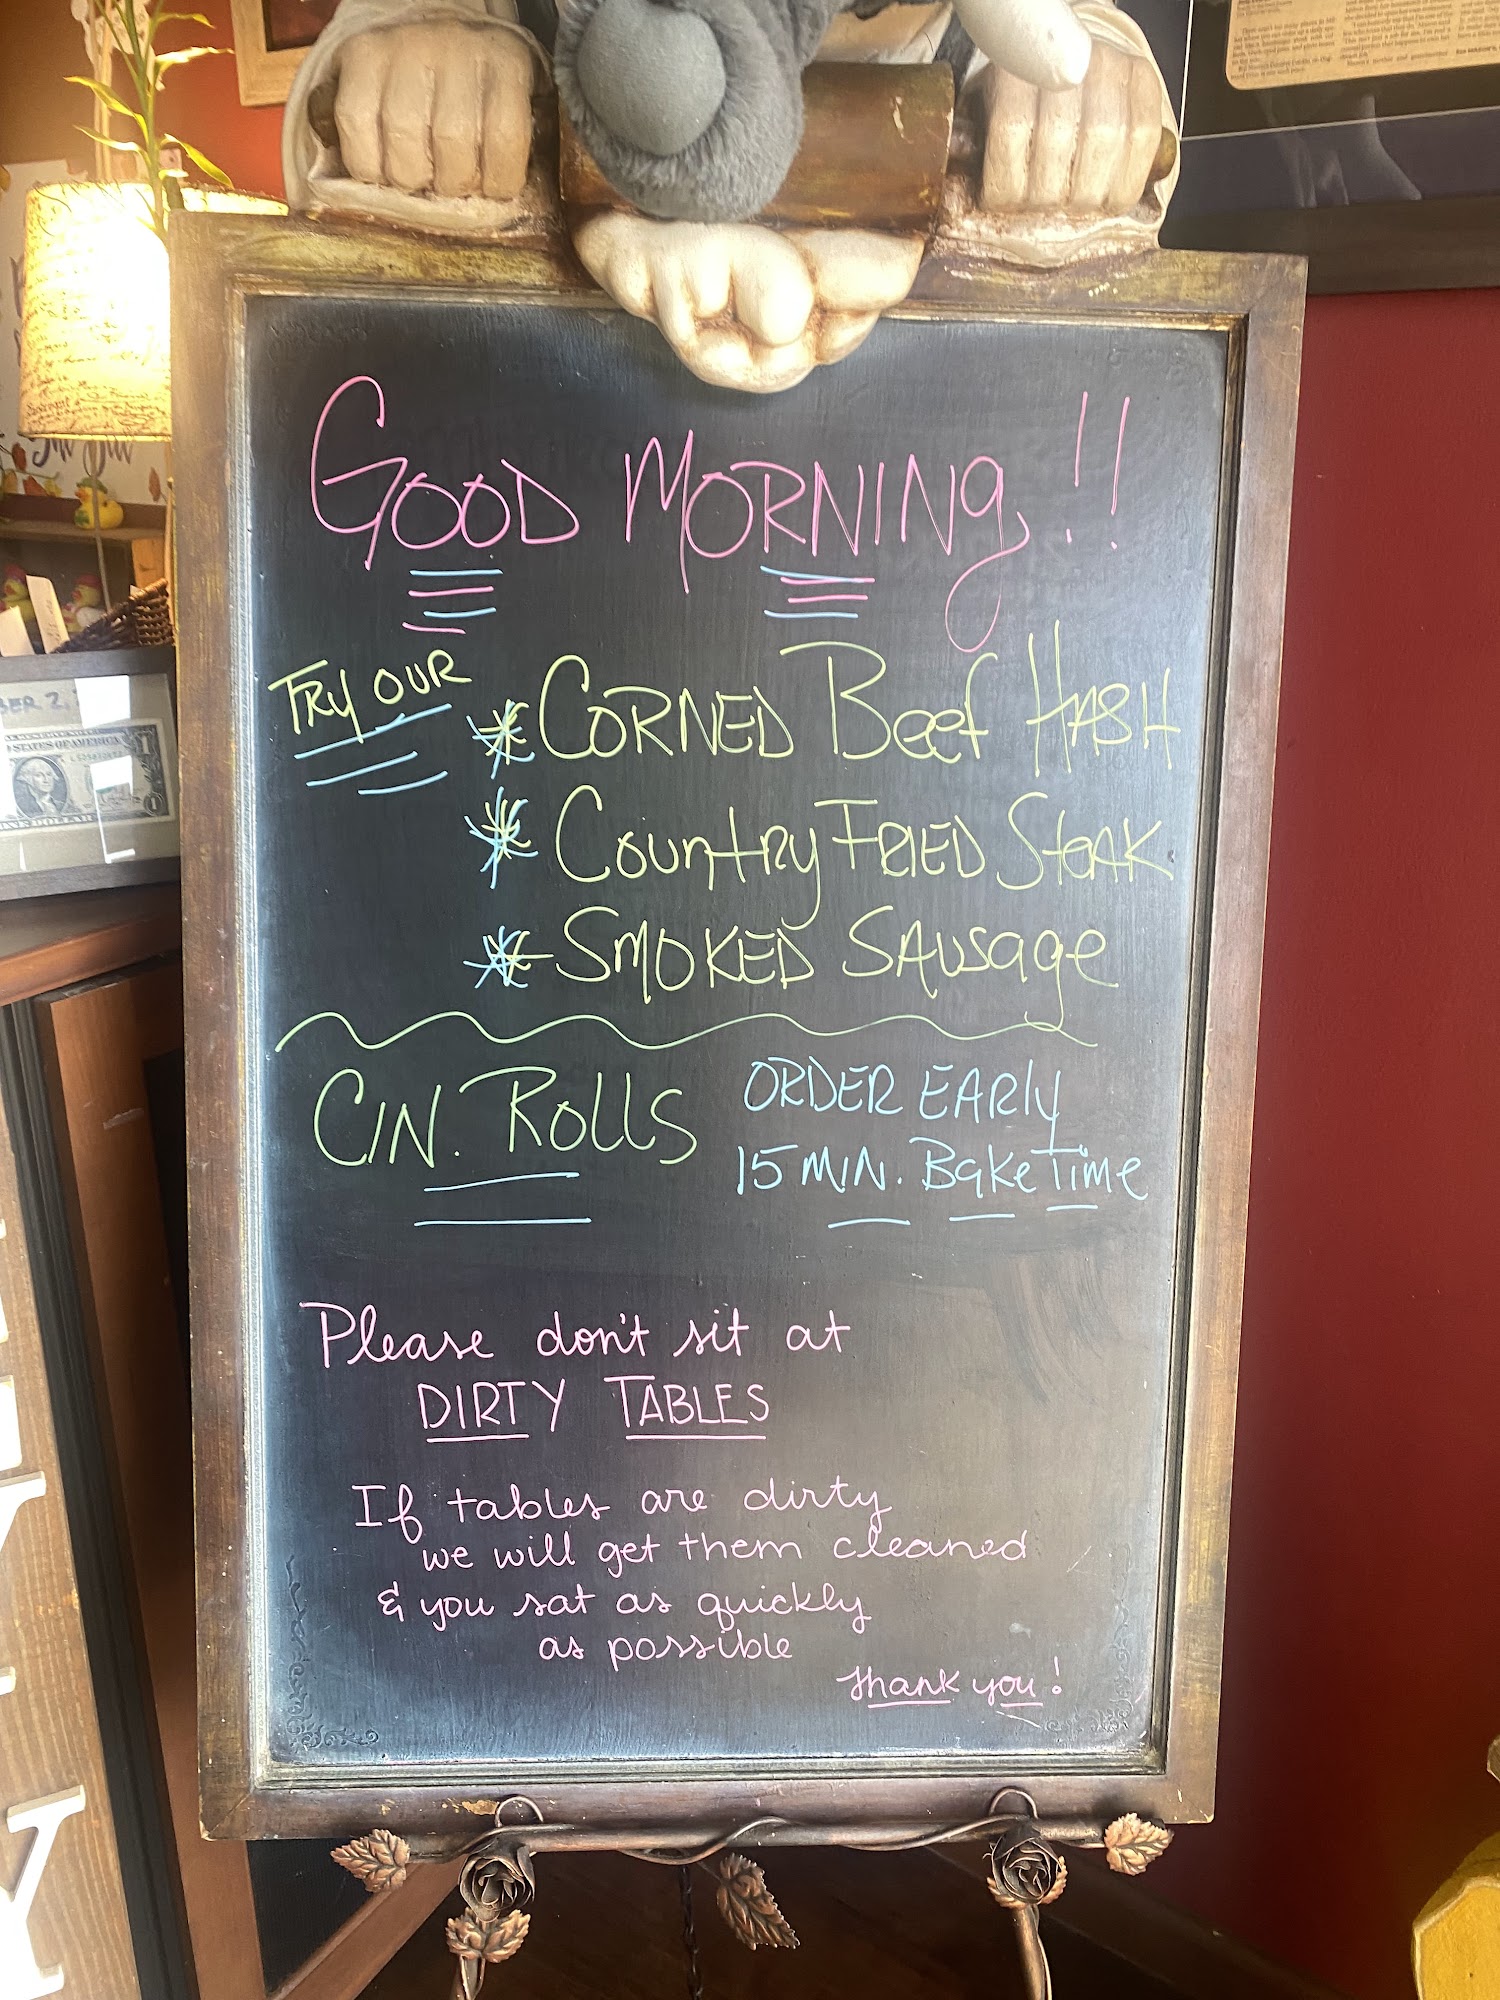 GOOD MORNINg!!
TRY OUR
* CORNED Beef HASH
* CountRy FRIED Steak
* SMOKED SAUsage
CIN. ROLLS
ORDER EARLY
15 MIN. Bake Time
Please don't sit at
DIRTY TABLES
If tables are dirty
we will get them cleaned
& you sat as quickly
as possible
Thank you!
BER 2,
STATES OF AMERICA
ONE DOLLAR